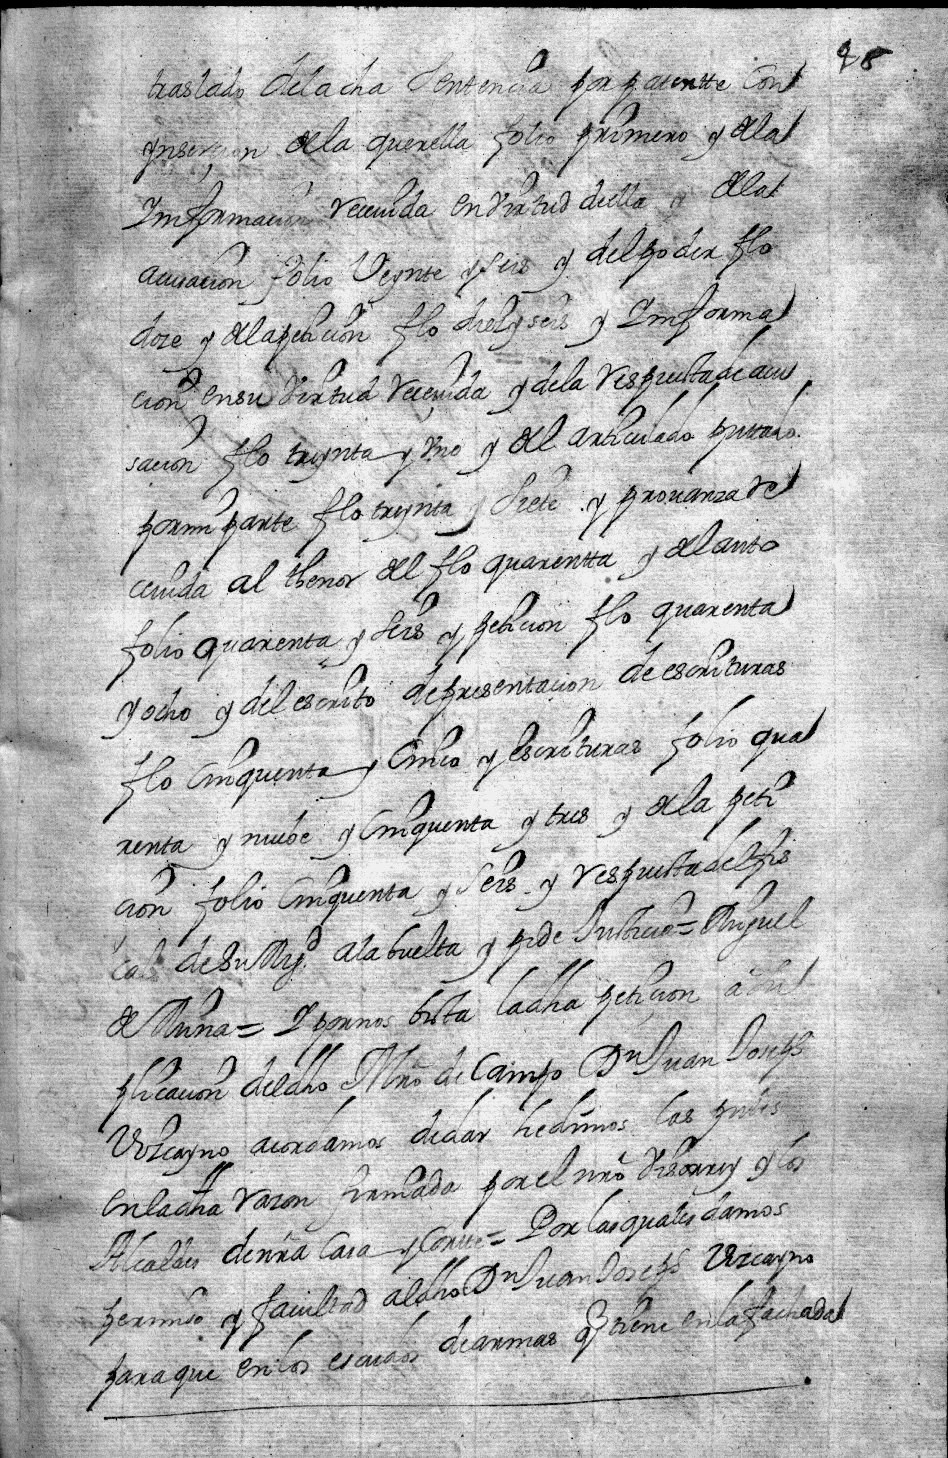 28
traslado dela dha sentencia por patentte con
ynsercion dela querella folio primero y dela
Informacion receuida en Virtud della y dela
acusacion folio Veynte y seis y del poder flo
doze y dela peticion flo diez y seis y Informa
cion en su Virtud receuida y dela respuesta de acu
sacion flo treynta y Vno y del articulado puesto
por mi parte flo treynta y siete y prouanza re
ceuida al thenor del flo quarentta y del auto
folio quarenta y seis y peticion flo quarenta
y ocho y del escrito de presentacion de escrituras
flo cinquenta y cinco y escrituras folio qua
renta y nuebe y cinquenta y tres y dela peti
cion folio cinquenta y seis y respuesta del fis
cal de su Mgd. ala buelta y pide Justicia = Miguel
de Muna = I por nos bista la dha peticion a su
plicacion del dho Mro de Campo Dn Juan Joseph
Vizcayno acordamos de dar he dimos las pntes
en la dha razon firmada por el nro Visorrey y los
Alcaldes de nra Casa y Corte = Por las quales damos
permiso y facultad al dho Dn Juan Joseph Vizcayno
para que en los escudos de armas q tiene en la fachada